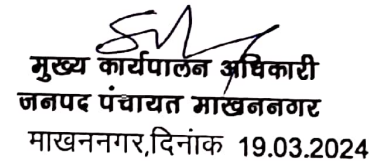 मुख्य कार्यपालन अधिकारी
जनपद पंचायत माखननगर
माखननगर,दिनांक 19.03.2024